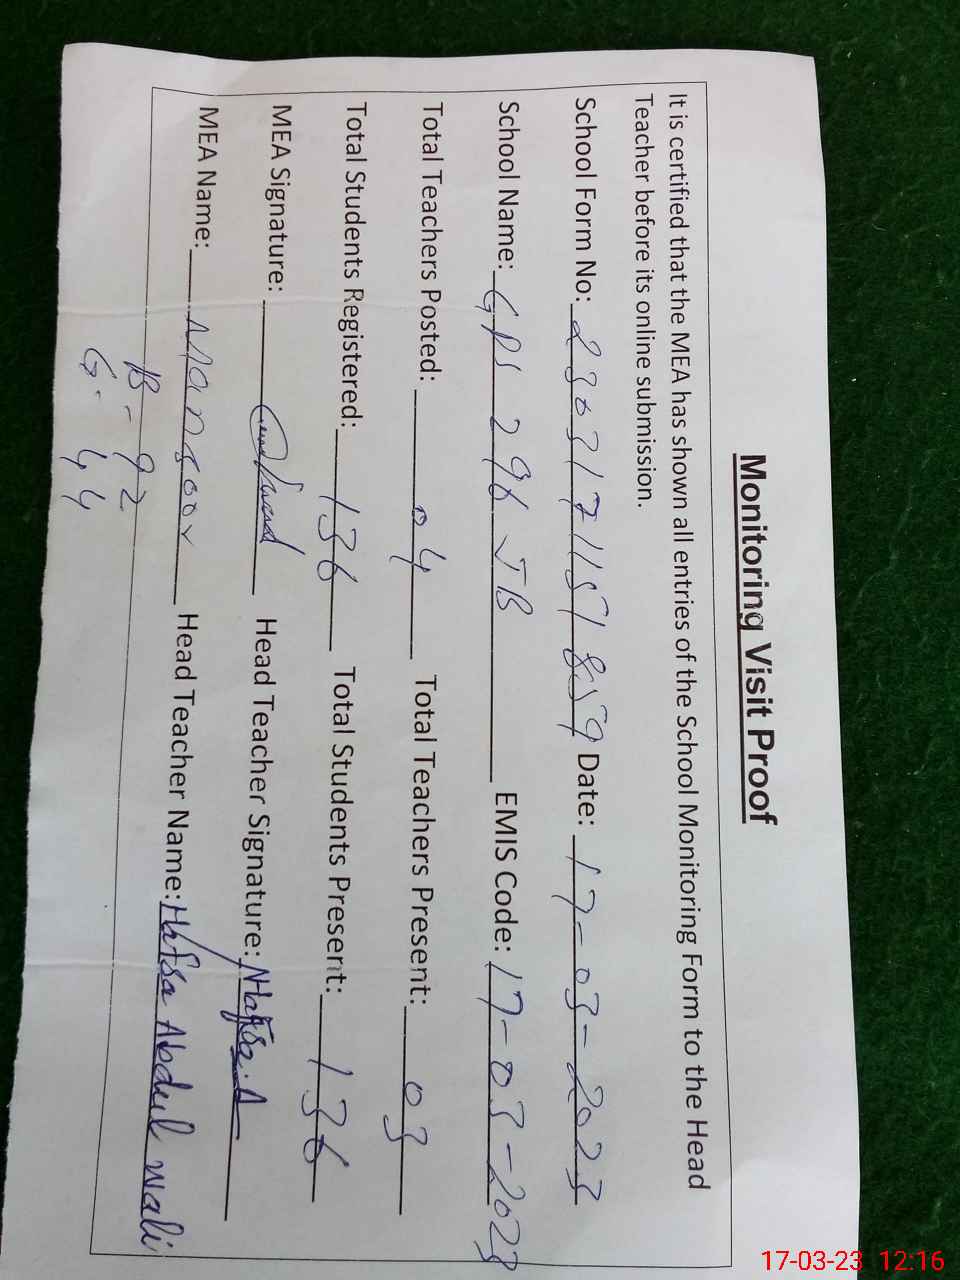 Monitoring Visit Proof
It is certified that the MEA has shown all entries of the School Monitoring Form to the Head
Teacher before its online submission.
School Form No: 2303171151859 Date: 17-03-2023
School Name: GPS 296 JB EMIS Code: 17-03-2023
Total Teachers Posted: 04 Total Teachers Present: 03
Total Students Registered: 136 Total Students Present: 136
MEA Signature: Head Teacher Signature: Hafsa.A
MEA Name: Mansoor Head Teacher Name: Hafsa Abdul Wali
B - 92
G - 44
17-03-23 12:16